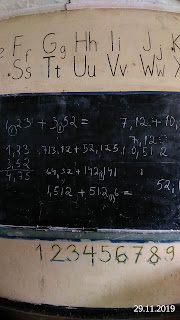 F f G g H h I i J j K
S s T t U u V v W w X
1,23 + 3,52 =
7,12 + 10,
1,23
713,12 + 52,125
7,12
10,512
3,52
4,75
64,32 + 142,141
1,512 + 512,6 =
52,
1 2 3 4 5 6 7 8 9
29.11.2019